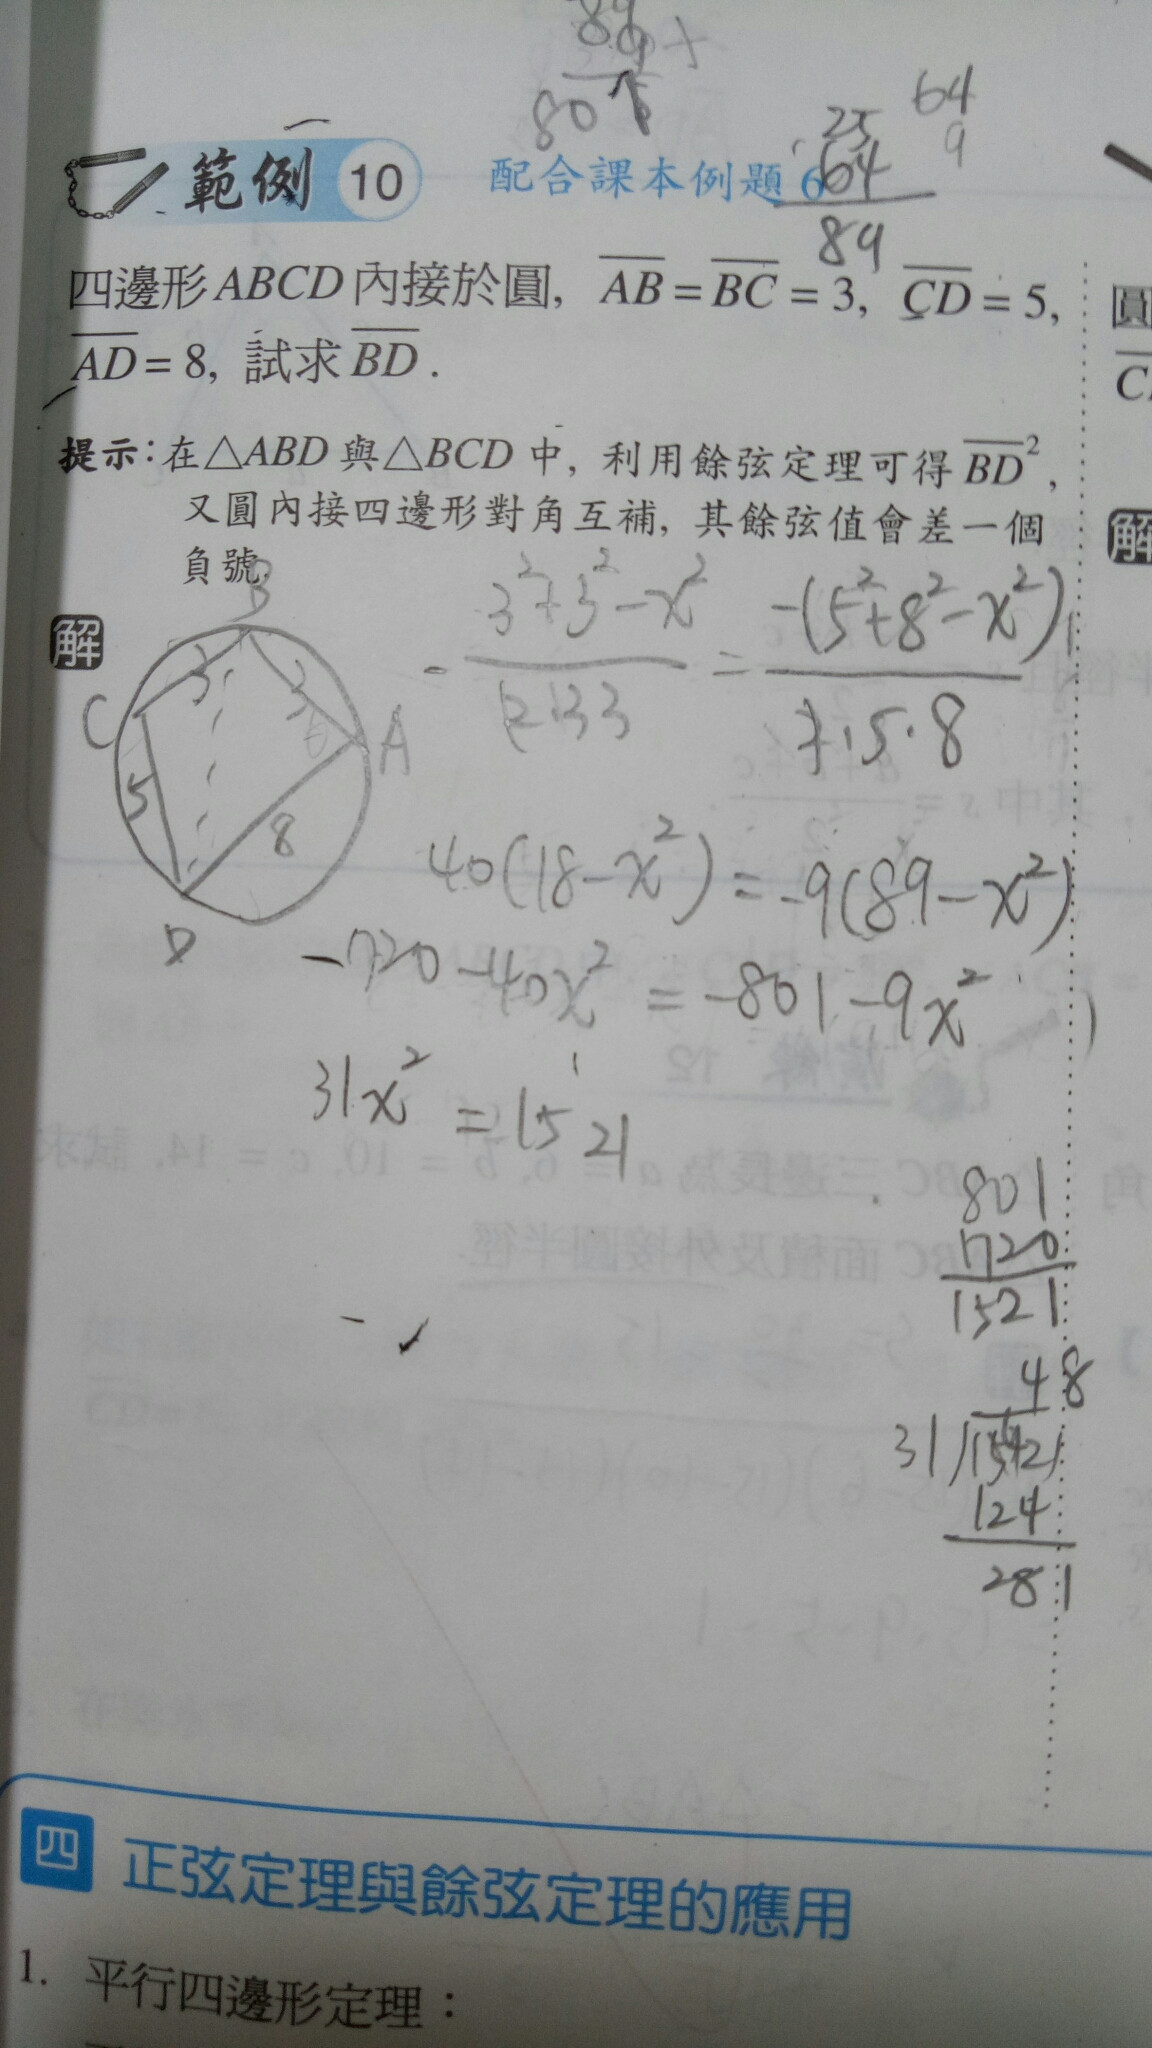 89
9
801
25
64
89
64
9
範例 10 配合課本例題 6
四邊形ABCD內接於圓, AB = BC = 3, CD = 5,
AD = 8, 試求 BD .
提示:在△ABD 與△BCD 中, 利用餘弦定理可得 BD²,
又圓內接四邊形對角互補, 其餘弦值會差一個
負號.
解
B
C
A
D
3
3
5
8
3²+3²-x² = -(5²+8²-x²)
5·8
40(18-x²) = -9(89-x²)
-720-40x² = -801-9x²
31x² = 1521
801
720
1521
48
31
124
281
四 正弦定理與餘弦定理的應用
1. 平行四邊形定理:
圓
解